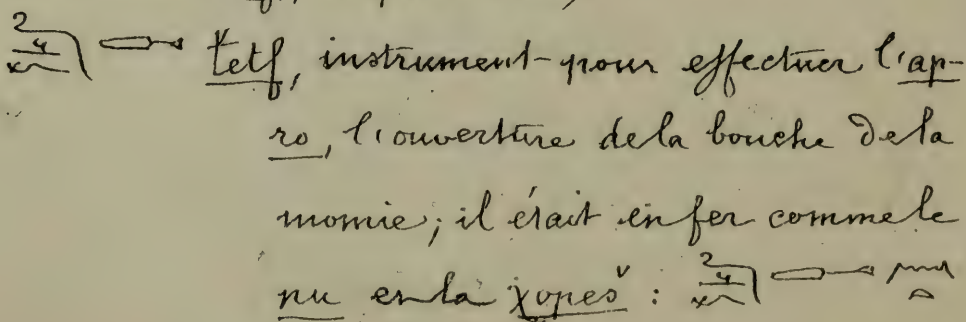 tetf, instrument pour effectuer l'ap-
ro, l'ouverture de la bouche de la
momie; il était en fer comme le
nu et la χopeš :